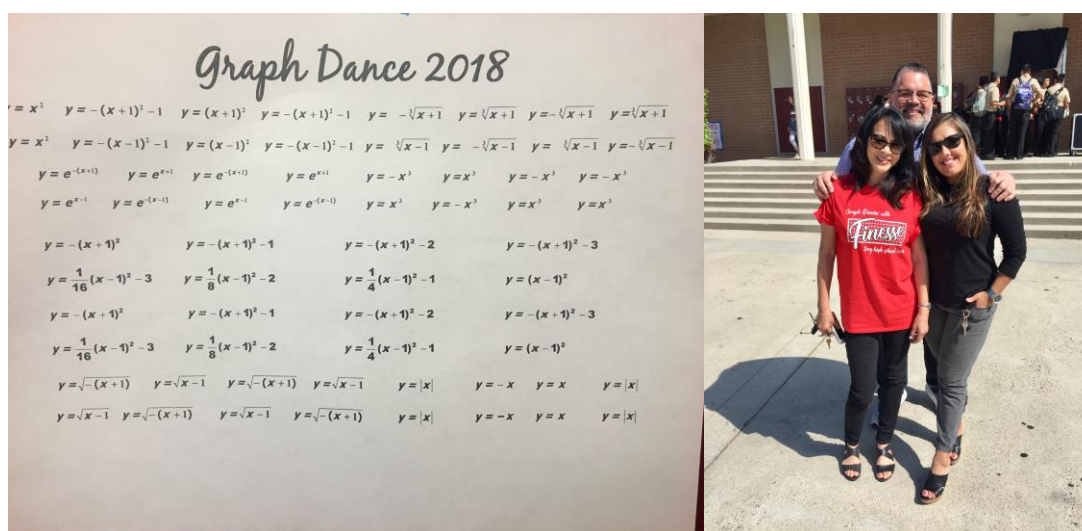 Graph Dance 2018
= x² y = −(x + 1)² − 1 y = (x + 1)² y = −(x + 1)² − 1 y = −∛(x + 1) y = ∛(x + 1) y = −∛(x + 1) y = ∛(x + 1)
y = x² y = −(x − 1)² − 1 y = (x − 1)² y = −(x − 1)² − 1 y = ∛(x − 1) y = −∛(x − 1) y = ∛(x − 1) y = −∛(x − 1)
y = e^(−(x+1)) y = e^(x+1) y = e^(−(x+1)) y = e^(x+1) y = −x³ y = x³ y = −x³ y = −x³
y = e^(x−1) y = e^(−(x−1)) y = e^(x−1) y = e^(−(x−1)) y = x³ y = −x³ y = x³ y = x³
y = −(x + 1)² y = −(x + 1)² − 1 y = −(x + 1)² − 2 y = −(x + 1)² − 3
y = 1/16(x − 1)² − 3 y = 1/8(x − 1)² − 2 y = 1/4(x − 1)² − 1 y = (x − 1)²
y = −(x + 1)² y = −(x + 1)² − 1 y = −(x + 1)² − 2 y = −(x + 1)² − 3
y = 1/16(x − 1)² − 3 y = 1/8(x − 1)² − 2 y = 1/4(x − 1)² − 1 y = (x − 1)²
y = √(−(x + 1)) y = √(x − 1) y = √(−(x + 1)) y = √(x − 1) y = |x| y = −x y = x y = |x|
y = √(x − 1) y = √(−(x + 1)) y = √(x − 1) y = √(−(x + 1)) y = |x| y = −x y = x y = |x|
Finesse
high school